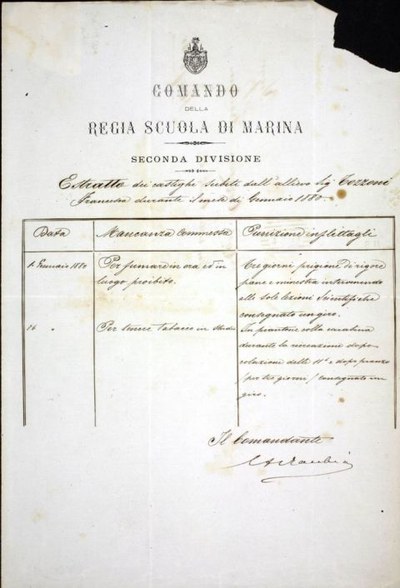 COMANDO
DELLA
REGIA SCUOLA DI MARINA
SECONDA DIVISIONE
Estratto dei castighi subiti dall'allievo Sig. Tozzoni
Francesco durante il mese di Gennaio 1880.
Data Mancanza commessa Punizione inflettagli
1 Gennaio 1880 Per fumare in ora ed in Tre giorni prigione di rigore
luogo proibito. pane e minestra intervenendo
alle sole lezioni scientifiche
consegnato in giro.
16 " Per tenere tabacco in In piantone colla carabina
durante la ricreazione dopo
colazione delle 11 e dopo pranzo
(per tre giorni) consegnato in
giro.
Il Comandante